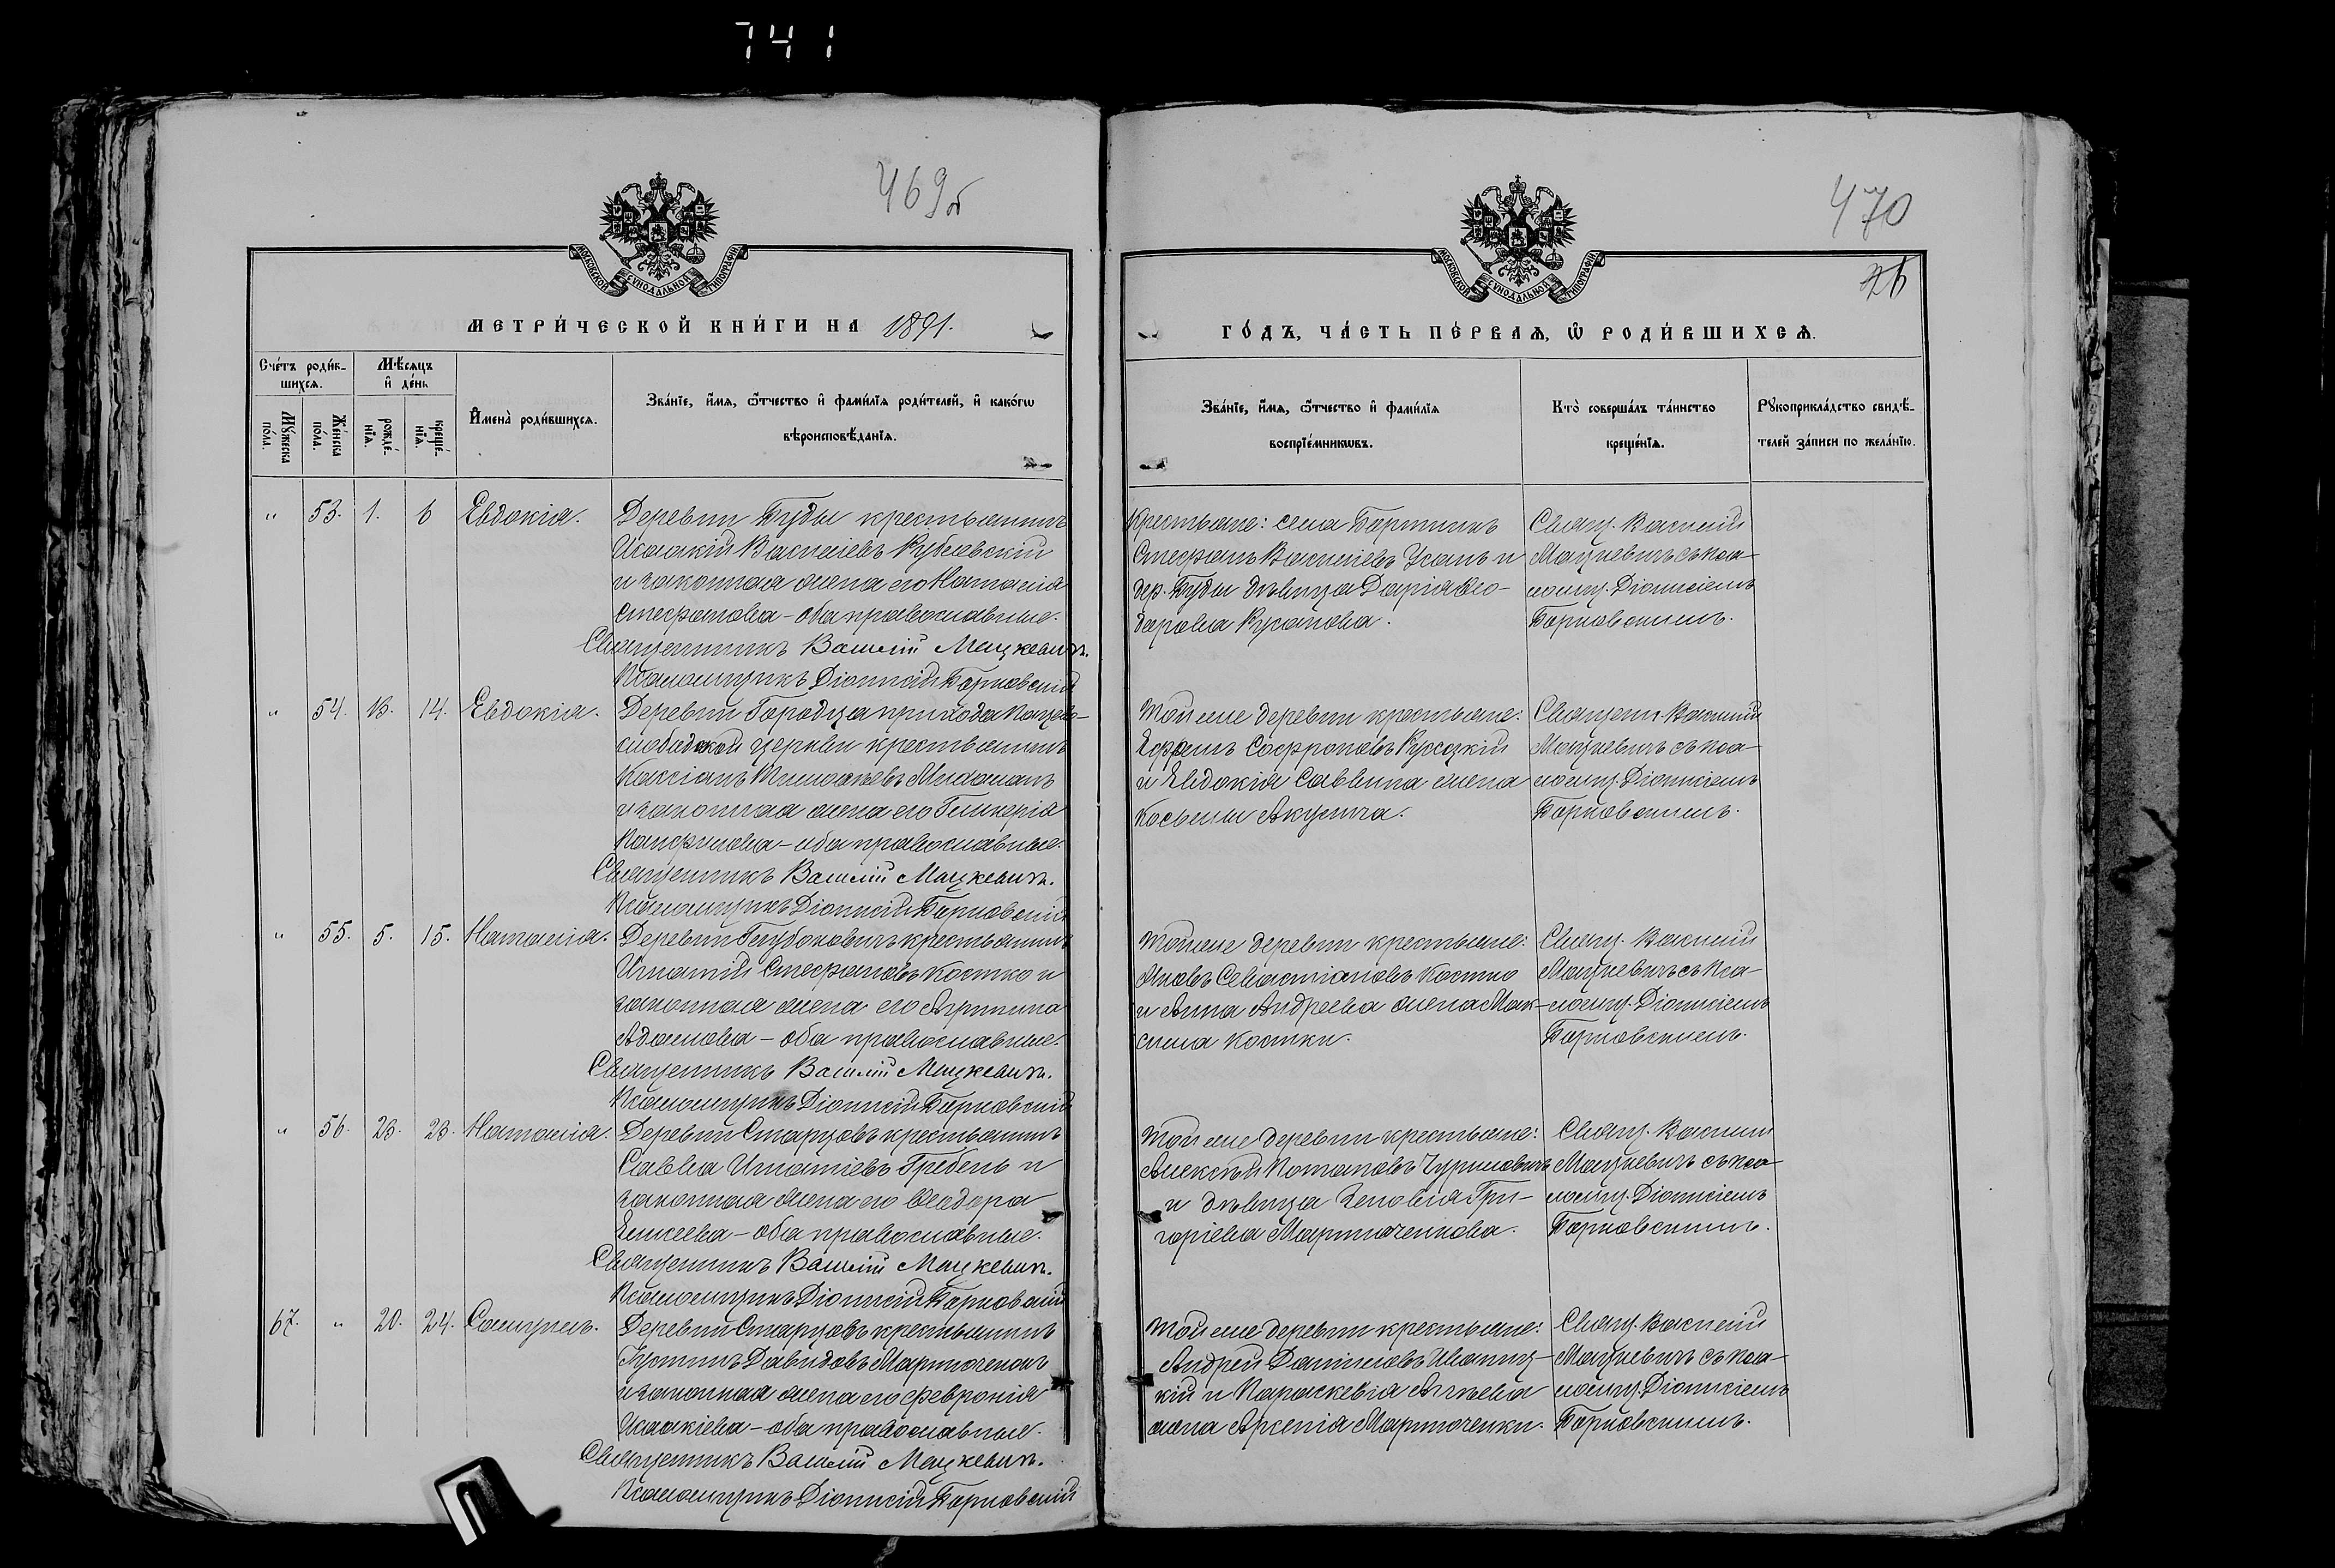 741
469об
470
26
МОСКОВСКОЙ СѴНОДАЛЬНОЙ ТИПОГРАФІИ
МОСКОВСКОЙ СѴНОДАЛЬНОЙ ТИПОГРАФІИ
МЕТРИ́ЧЕСКОЙ КНИ́ГИ НА 1891.
ГО́ДЪ, ЧА́СТЬ ПЕ́РВАѦ, Ѽ РОДИ́ВШИХСѦ.
Счéтъ роди́в-
шихсѧ.
Мѣ́сѧцъ
и҆ де́нь
Мꙋ́жеска
по́ла.
Же́нска
по́ла.
рожде́-
нїѧ.
креще́-
нїѧ.
И҆мена̀ роди́вшихсѧ.
Зва́нїе, и҆́мѧ, ѻ҆́тчество и҆ фами́лїѧ роди́телей, и҆ како́гѡ
вѣроисповѣ́данїѧ.
Зва́нїе, и҆́мѧ, ѻ҆́тчество и҆ фами́лїѧ
воспрїе́мникѡвъ.
Кто̀ соверша́лъ та́инство
креще́нїѧ.
Рꙋкоприкла́дство свидѣ́-
телей за́писи по жела́нїю.
" 53. 1. 6 Евдокія.
Деревни Буды крестьянинъ
Исаакій Василіевъ Рублевскій
и законная жена его Наталія
Стефанова – оба православные.
Священникъ Василій Мацкевичъ.
Псаломщикъ Діонисій Барковскій
Крестьяне: села
Стефанъ Василіевъ и
дер. Буды дѣвица Дарія Ѳео-
дорова
Свящ. Василій
Мацкевичъ съ пса-
ломщ. Діонисіемъ
Барковскимъ.
" 54. 13. 14. Евдокія.
Деревни Городца прихода
слободской церкви крестьянинъ
Кассіанъ
и законная жена его Гликерія
Панфилова – оба православные.
Священникъ Василій Мацкевичъ.
Псаломщикъ Діонисій Барковскій
Той же деревни крестьяне:
Софроновъ
и Евдокія Саввина жена
Косьмы Акулича.
Священ. Василій
Мацкевичъ съ пса-
ломщ. Діонисіемъ
Барковскимъ.
" 55. 5. 15. Наталія.
Деревни Глубоковичъ крестьянинъ
Игнатій Стефановъ Костко и
законная жена его Агрипина
Адамова – оба православные.
Священникъ Василій Мацкевичъ.
Псаломщикъ Діонисій Барковскій
Той же деревни крестьяне:
Яковъ Севастіановъ Костко
и Анна Андреева жена Мак-
сима Костки.
Свящ. Василій
Мацкевичъ съ пса-
ломщ. Діонисіемъ
Барковскимъ.
" 56. 23. 23. Наталія.
Деревни Старцовъ крестьянинъ
Савва Игнатіевъ Гребень и
законная жена его Ѳеодора
Елисеева – оба православные.
Священникъ Василій Мацкевичъ.
Псаломщикъ Діонисій Барковскій
Той же деревни крестьяне:
Алексѣй Потаповъ Чуриловичъ
и дѣвица Зеновія Гри-
горіева Мартюченкова.
Свящ. Василій
Мацкевичъ съ пса-
ломщ. Діонисіемъ
Барковскимъ.
67. " 20. 24. Самуилъ.
Деревни Старцовъ крестьянинъ
Іустинъ Давидовъ Мартюченокъ
и законная жена его Февронія
Исаакіева – оба православные.
Священникъ Василій Мацкевичъ.
Псаломщикъ Діонисій Барковскій
Той же деревни крестьяне:
Андрей Даниловъ Иваниц-
кій и Параскевія
жена Арсенія Мартюченки.
Свящ. Василій
Мацкевичъ съ пса-
ломщ. Діонисіемъ
Барковскимъ.